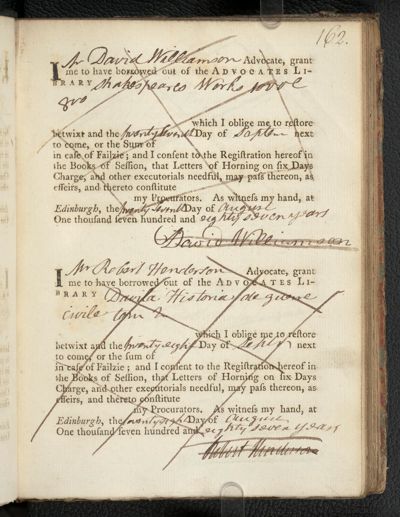 162.
I Mr David Williamson Advocate, grant
me to have borrowed out of the ADVOCATES LI-
BRARY Shakespeares Works 10 vol
8vo
which I oblige me to restore
betwixt and the twenty seventh Day of Septem next
to come, or the Sum of
in caſe of Failzie; and I conſent to the Regiſtration hereof in
the Books of Seſſion, that Letters of Horning on ſix Days
Charge, and other executorials needful, may paſs thereon, as
effeirs, and thereto conſtitute
my Procurators. As witneſs my hand, at
Edinburgh, the twenty seventh Day of August
One thouſand ſeven hundred and eighty seven years
David Williamson
I Mr Robert Henderson Advocate, grant
me to have borrowed out of the ADVOCATES LI-
BRARY Davila Historia de guerre
civile tom 2
which I oblige me to reſtore
betwixt and the twenty eight Day of Septr next
to come, or the ſum of
in caſe of Failzie; and I conſent to the Regiſtration hereof in
the Books of Seſſion, that Letters of Horning on ſix Days
Charge, and other executorials needful, may paſs thereon, as
effeirs, and thereto conſtitute
my Procurators. As witneſs my hand, at
Edinburgh, the twenty eight Day of August
One thouſand ſeven hundred and eighty seven years
Robert Henderson